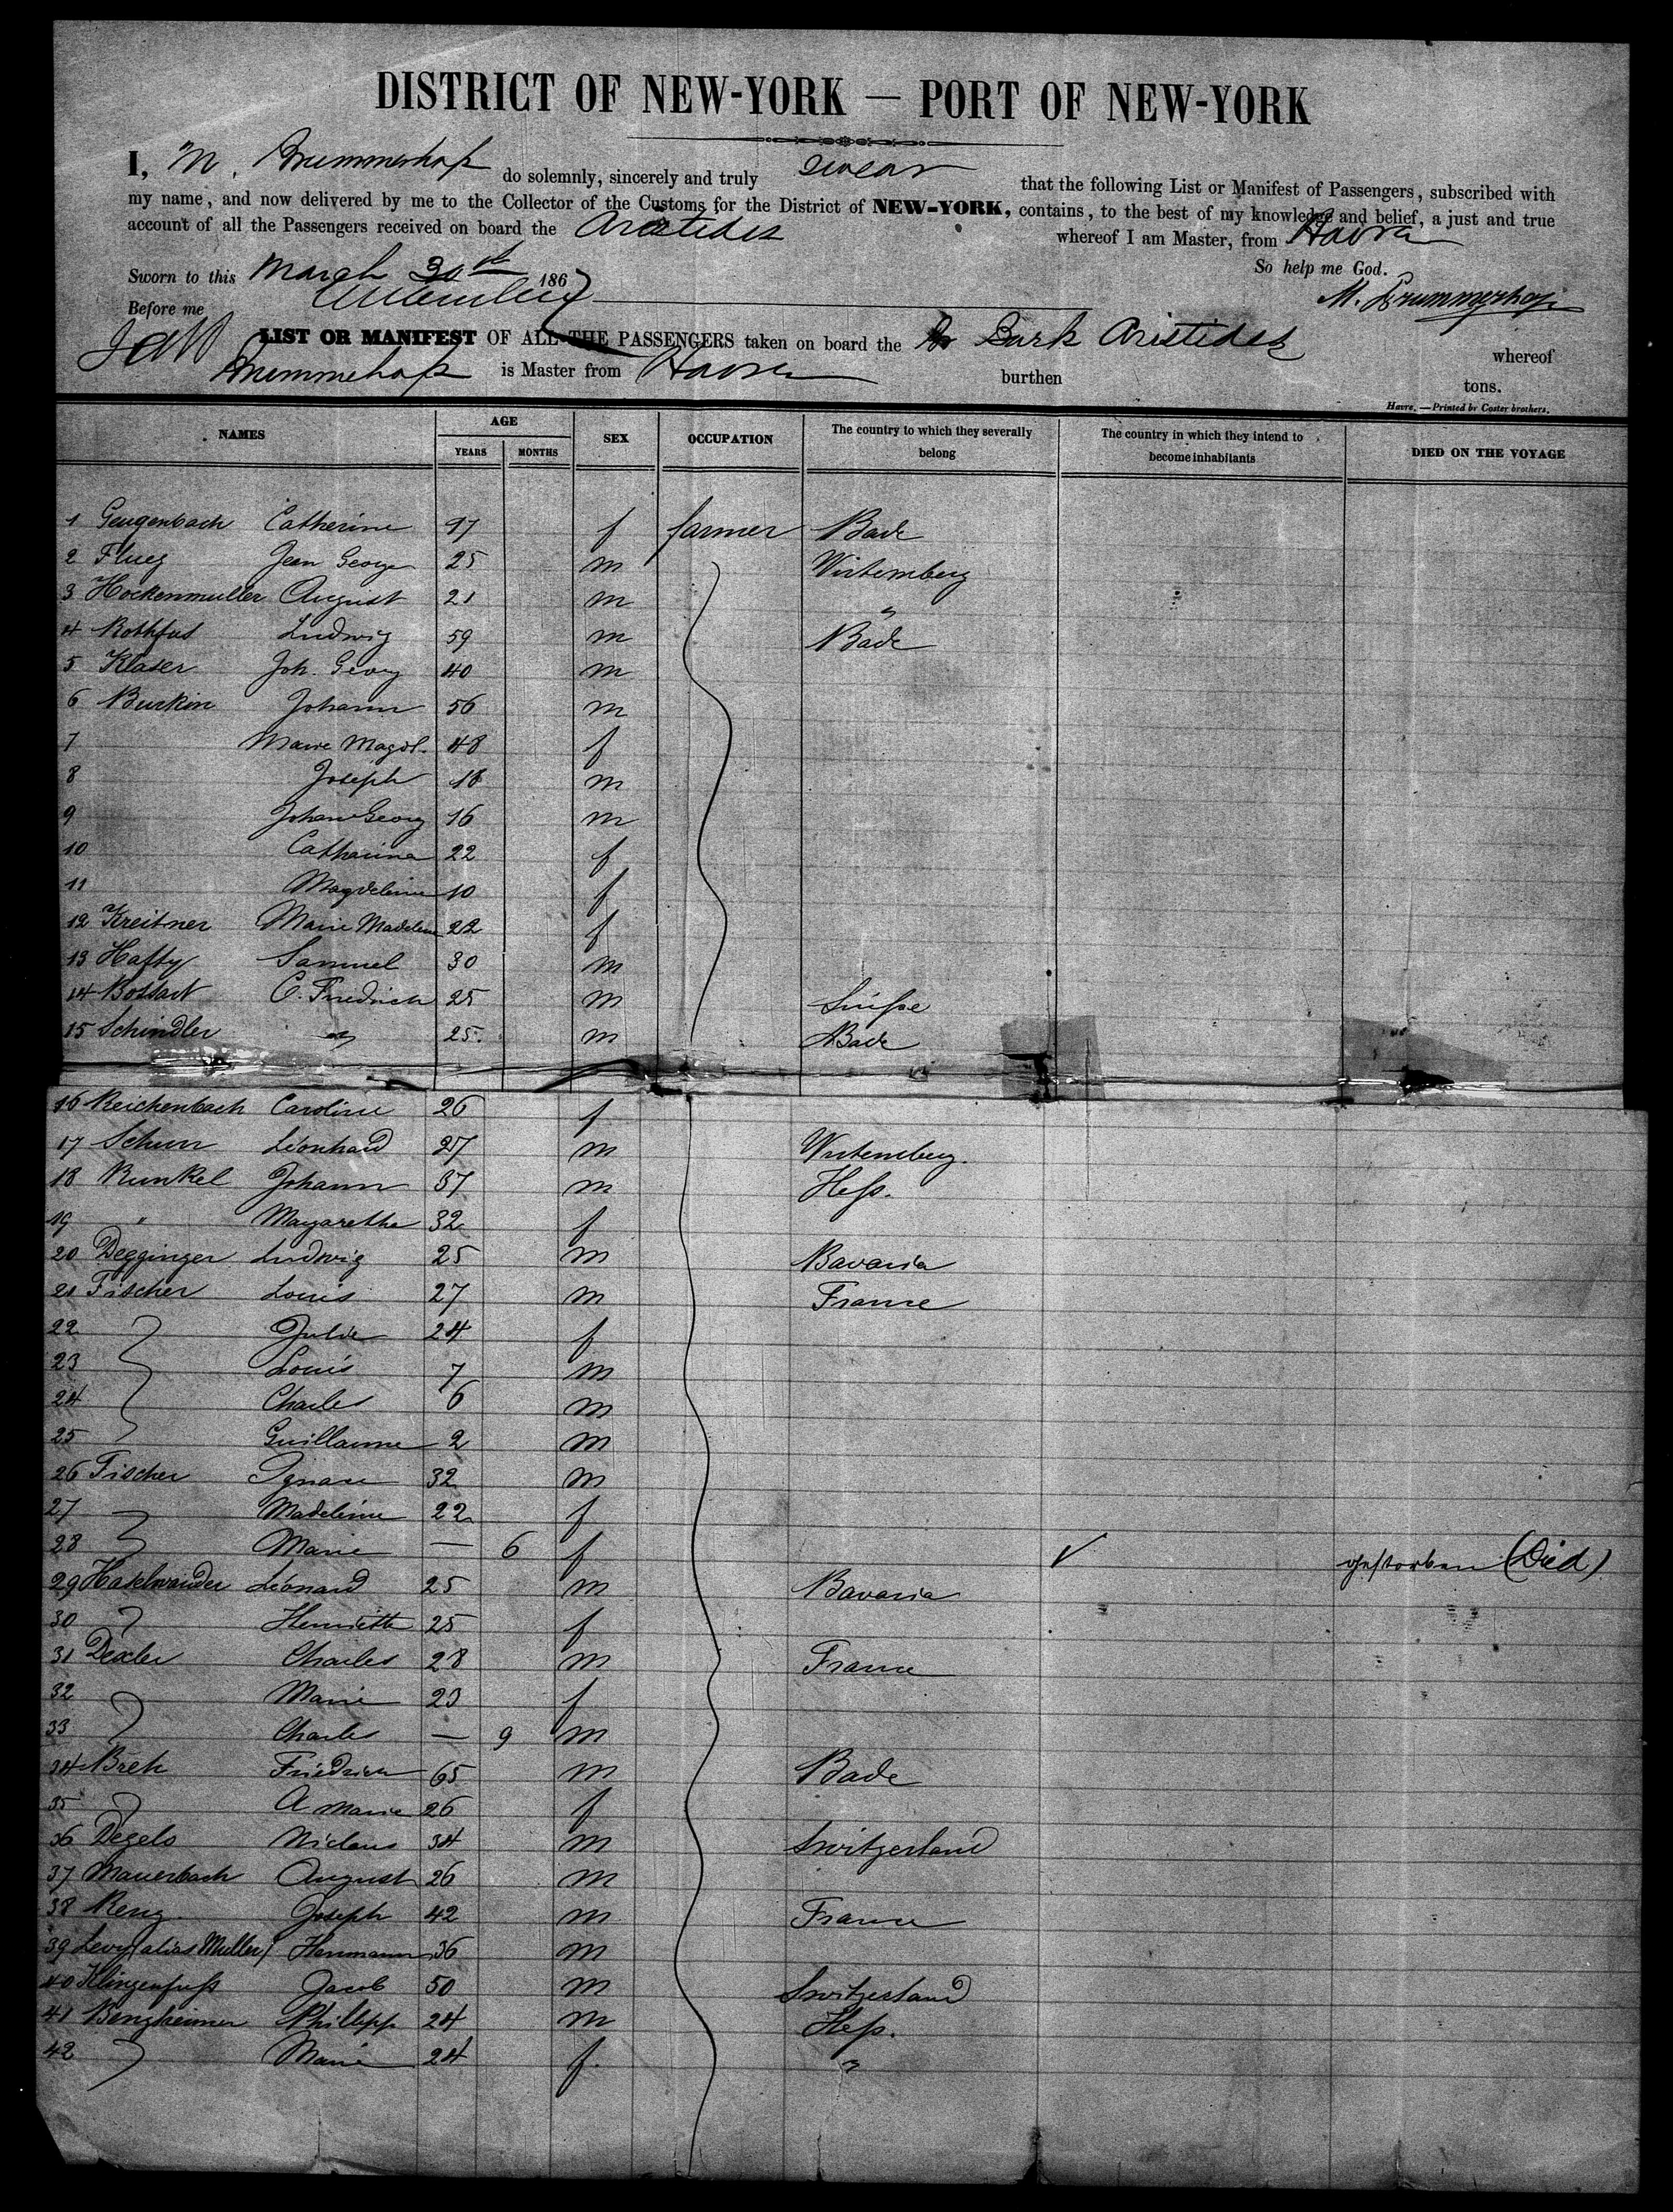 DISTRICT OF NEW-YORK — PORT OF NEW-YORK
I, M. Brummerhop do solemnly, sincerely and truly swear that the following List or Manifest of Passengers, subscribed with
my name, and now delivered by me to the Collector of the Customs for the District of NEW-YORK, contains, to the best of my knowledge and belief, a just and true
account of all the Passengers received on board the Aristides whereof I am Master, from Havre
So help me God.
Sworn to this March 30th 1867
Before me
M. Brummerhop
LIST OR MANIFEST OF ALL THE PASSENGERS taken on board the Br Bark Aristides whereof
Brummehop is Master from Havre burthen tons.
Havre. — Printed br Coster brothers.
NAMES AGE YEARS MONTHS SEX OCCUPATION The country to which they severally belong The country in which they intend to become inhabitants DIED ON THE VOYAGE
1 Gengenbach Catherine 27 f farmer Bade
2 Flueg Jean George 25 m Wirtemberg
3 Hockenmuller August 21 m "
4 Rothfus Ludwig 59 m Bade
5 Klaser Joh. Georg 40 m
6 Burkin Johann 56 m
7 Marie Magd. 48 f
8 Joseph 18 m
9 Johan Georg 16 m
10 Catharina 22 f
11 Magdeleine 10 f
12 Kreitner Marie Madeleine 22 f
13 Hafty Samuel 30 m
14 Bossart C. Friedrich 25 m Suisse
15 Schindler " 25. m Bade
16 Reichenbach Caroline 26 f
17 Schurr Léonhard 27 m Wurtemberg.
18 Runkel Johann 37 m Hess.
19 " Margarethe 32 f
20 Degginger Ludwig 25 m Bavaria
21 Fischer Louis 27 m France
22 Julie 24 f
23 Louis 7 m
24 Charles 6 m
25 Guillaume 2 m
26 Fischer Ignace 32 m
27 Madeleine 22 f
28 Marie — 6 f ✓ gestorben (Died)
29 Haselwander Léonard 25 m Bavaria
30 " Henriette 25 f
31 Dexler Charles 28 m France
32 Marie 23 f
33 Charles — 9 m
34 Breh Friedrich 65 m Bade
35 A. Marie 26 f
36 Degelo Niclaus 34 m Switzerland
37 Mauerbach August 26 m
38 Reng Joseph 42 m France
39 Levy (alias Muller) Hermann 36 m
40 Klingenfuss Jacob 50 m Switzerland
41 Benzheimer Philipp 24 m Hess.
42 " Marie 24 f. "